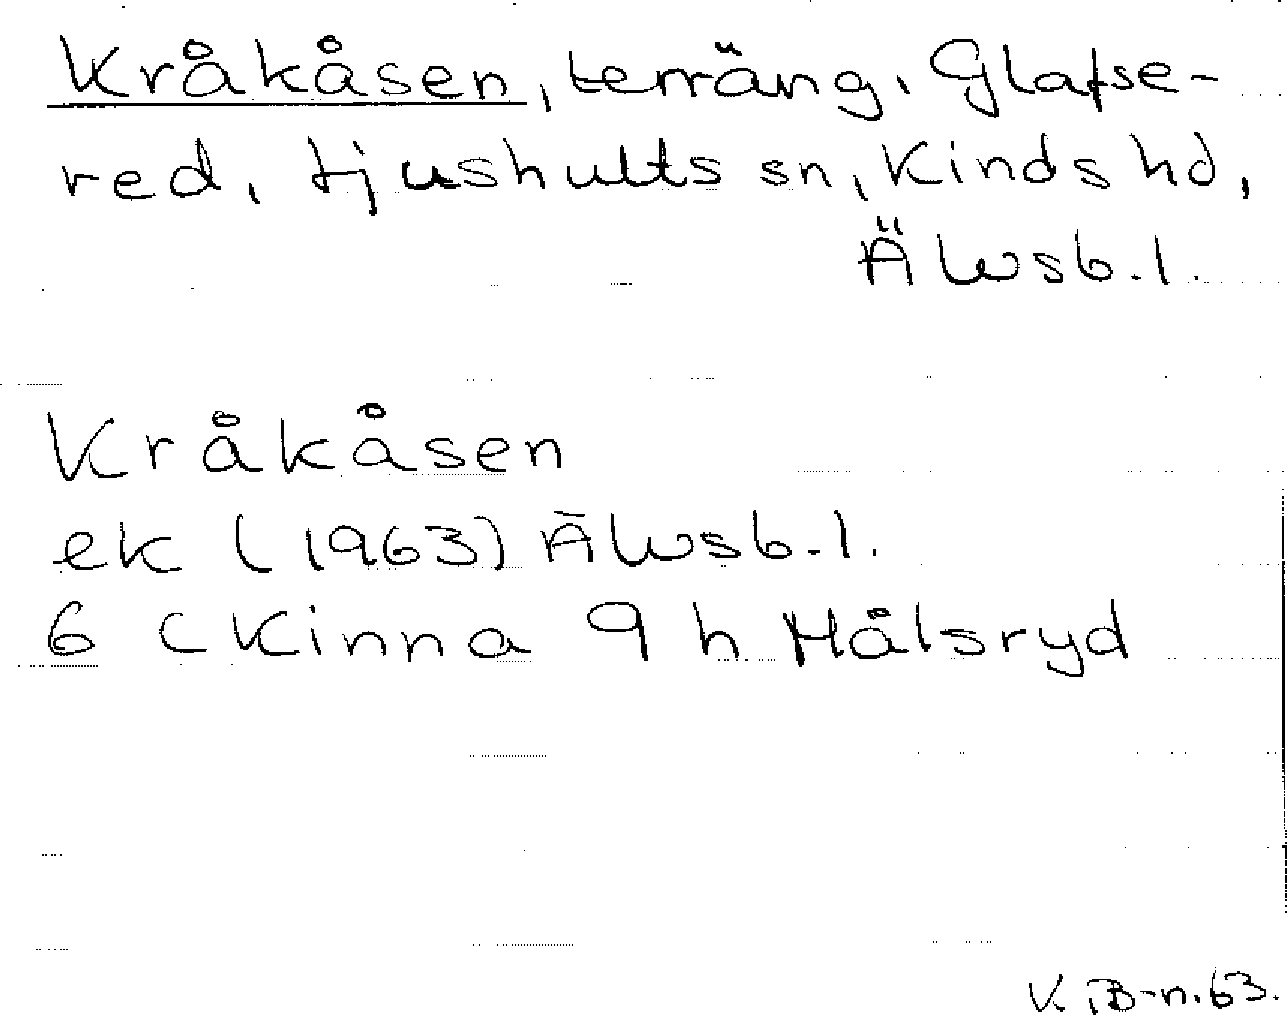 Kråkåsen, terräng, Glafse-
red, Ljushults sn, Kinds hd,
Älvsb.l.
Kråkåsen
ek (1963) Älvsb.l.
6 C Kinna 9 h Målsryd
K. iB-n.63.